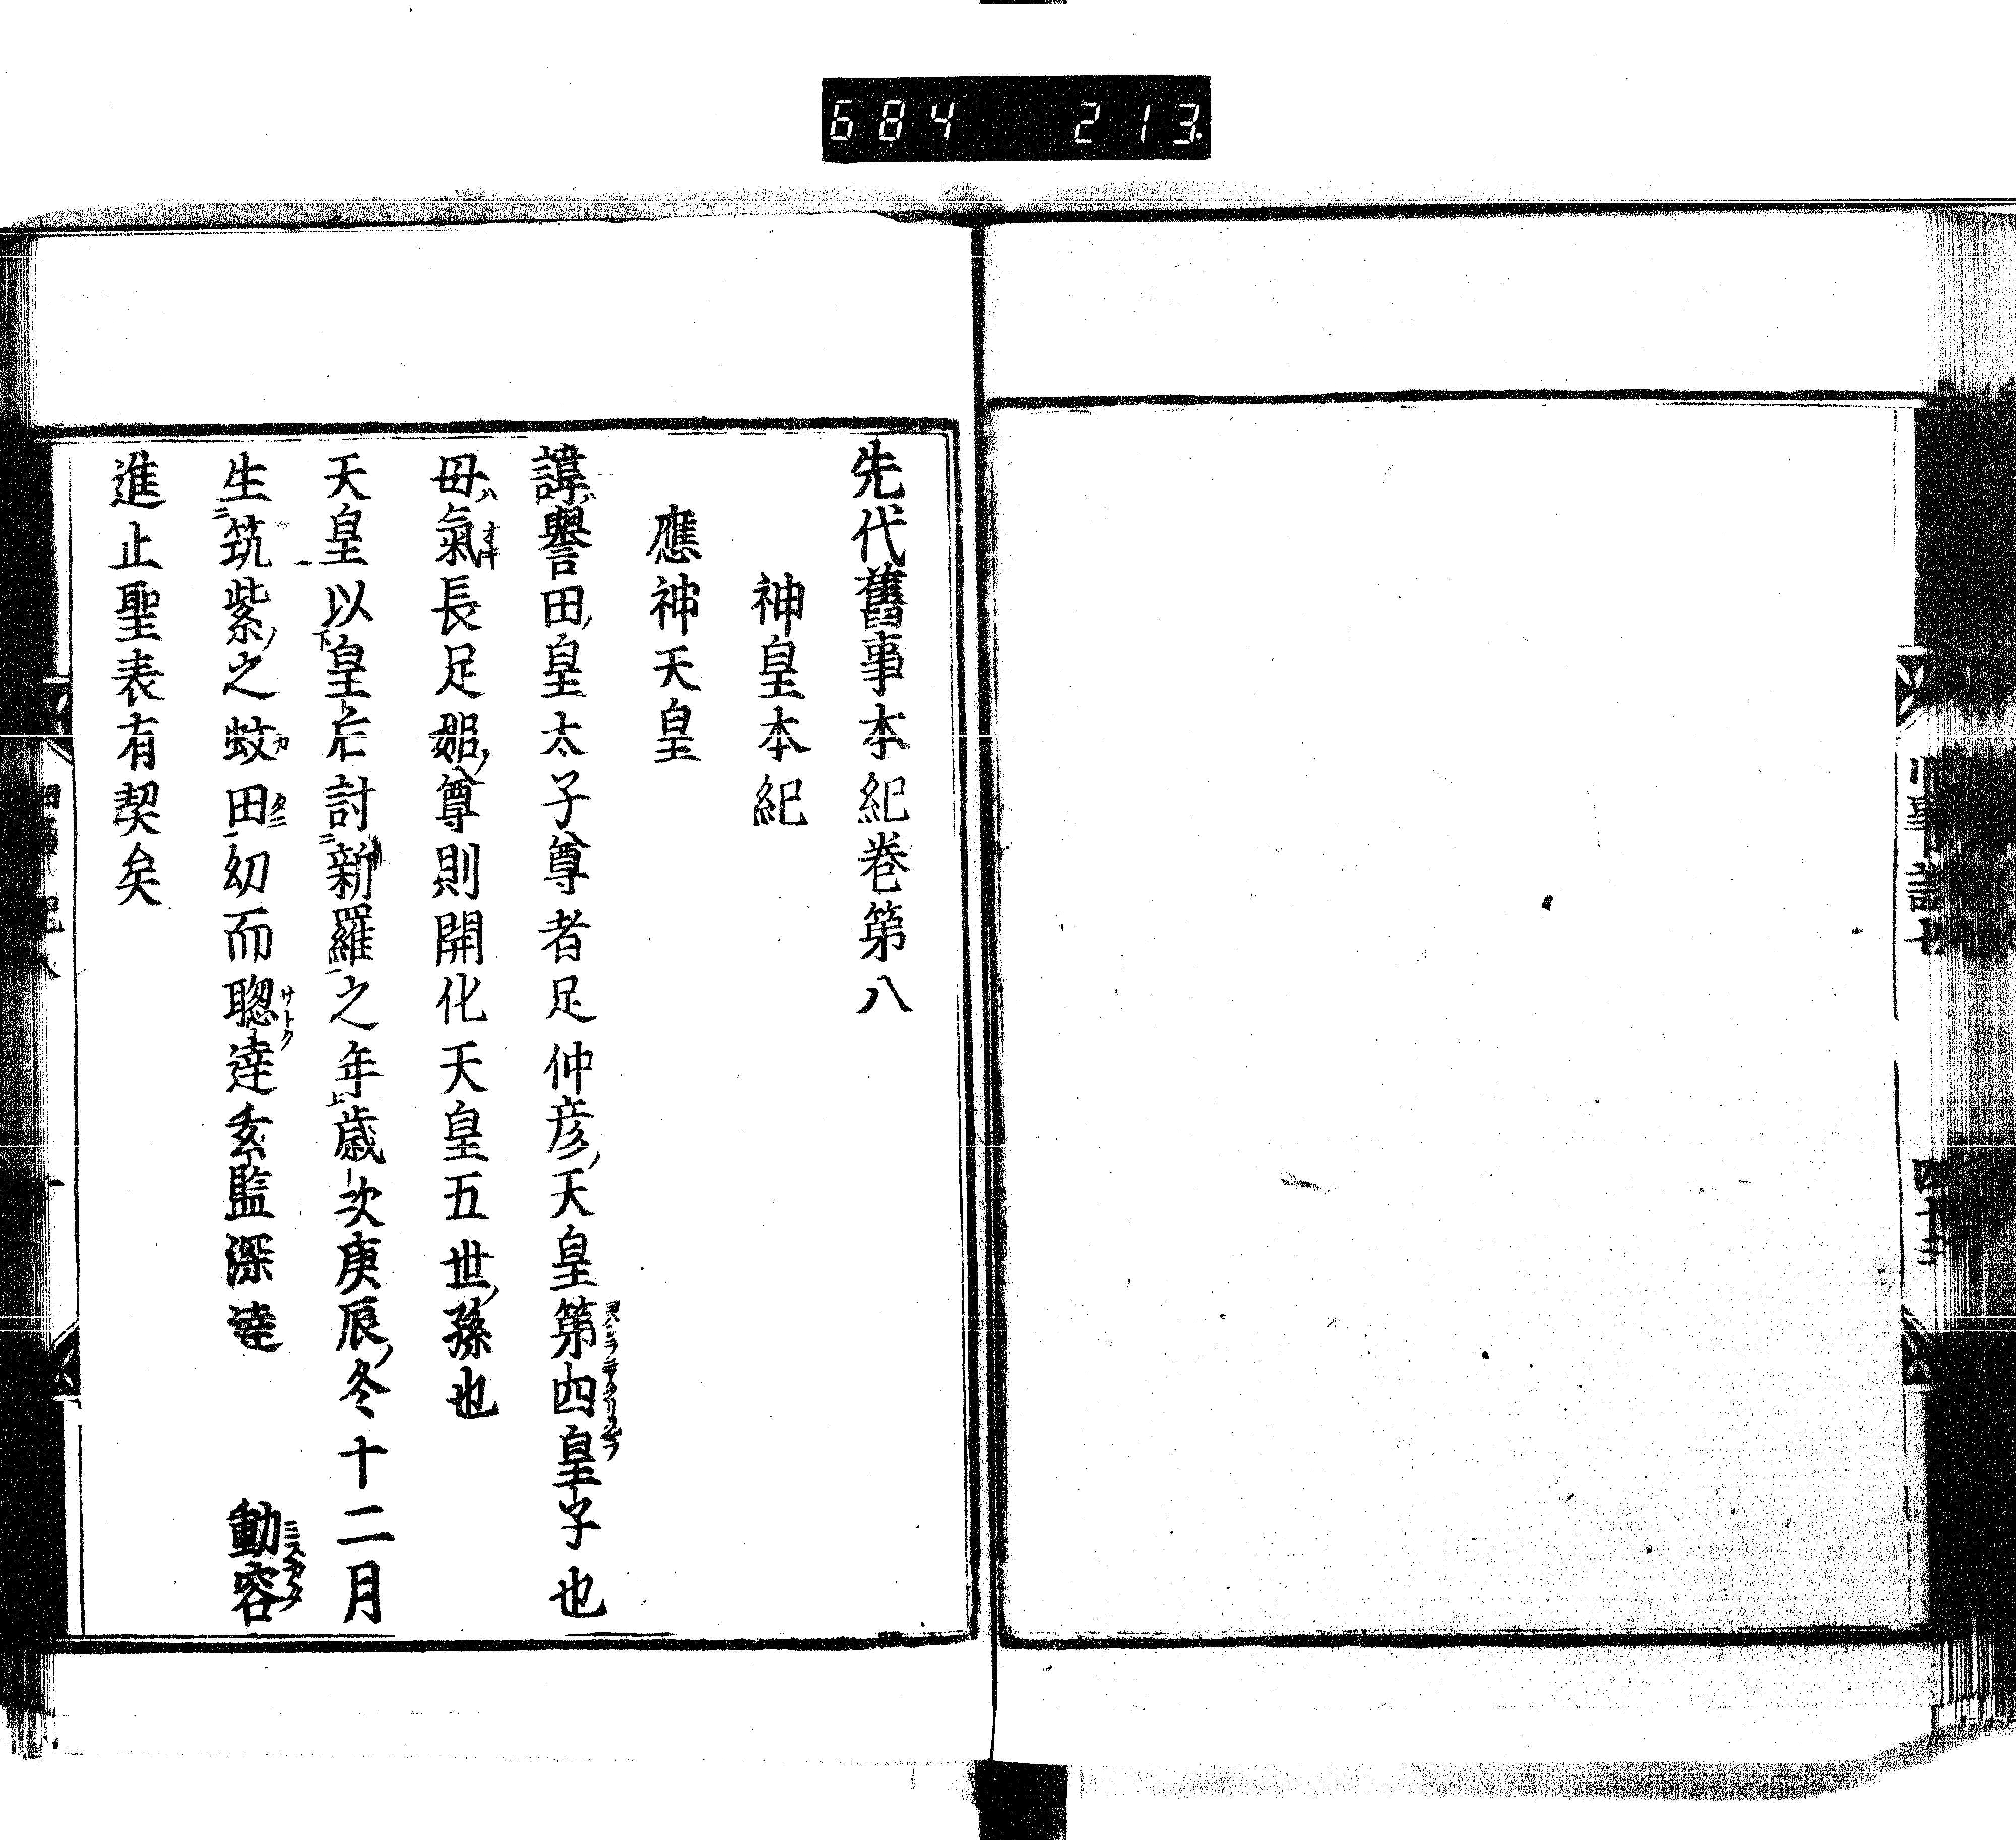 684 213
先代舊事本紀巻第八
神皇本紀
應神天皇
諱譽田皇太子尊者足仲彦天皇第四皇子也
母氣長足姫尊則開化天皇五世孫也
天皇以皇后討新羅之年歳次庚辰冬十二月
生筑紫之蚊田幼而聰達玄監深遠 動容
進止聖表有契矣